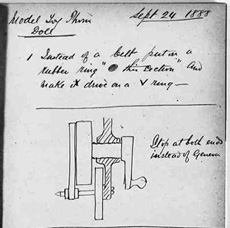 Model Toy Phono Sept 24 1888
Doll
1 Instead of a belt put in a
rubber ring " this section " and
make it drive on a V ring —
Stop at both ends
instead of Geneva